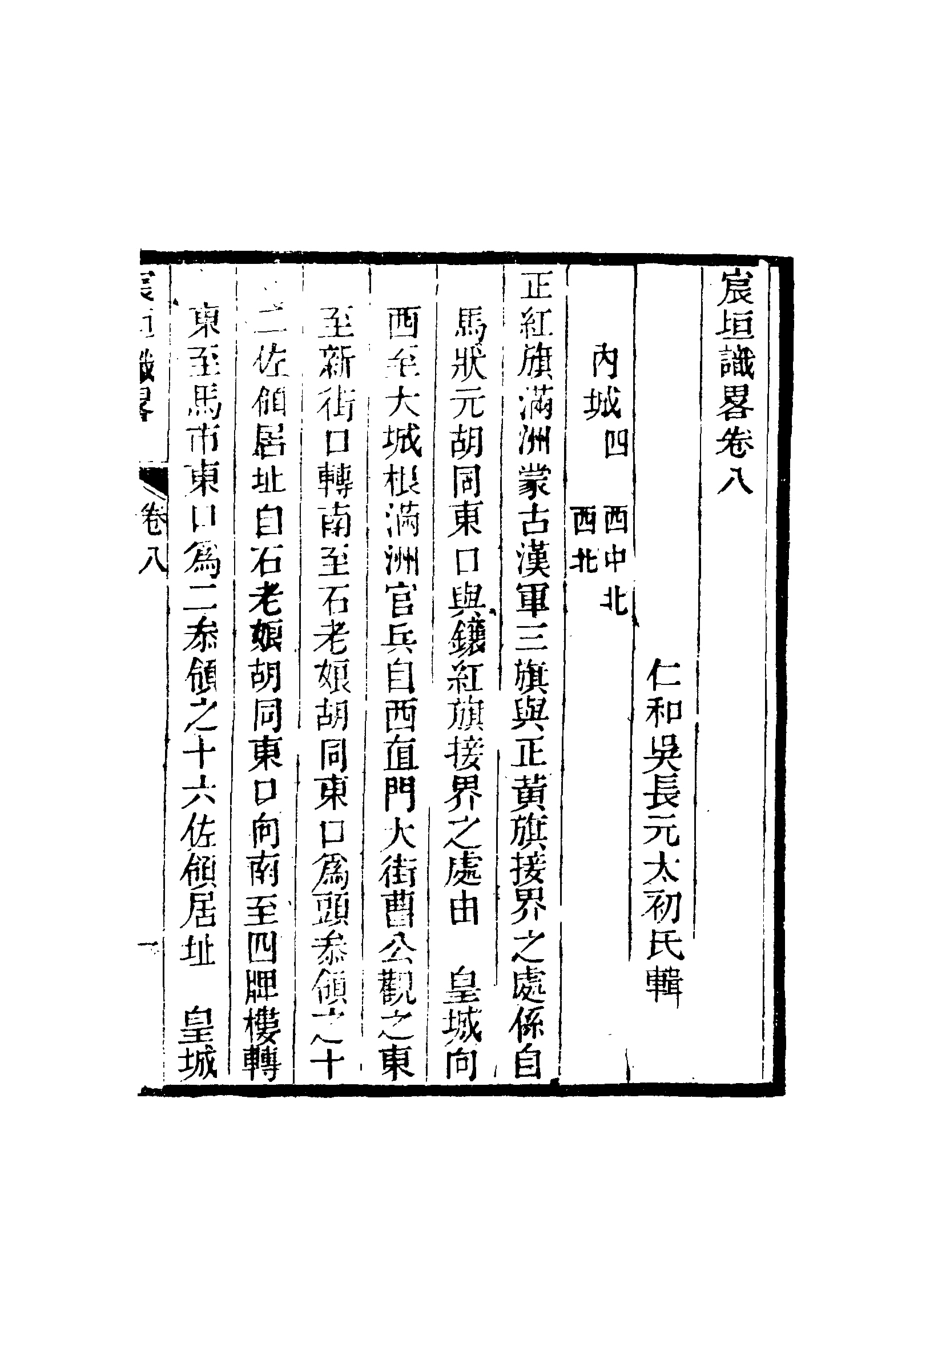 宸垣識畧卷八
仁和吳長元太初氏輯
內城四 西中北
西北
正紅旗滿洲蒙古漢軍三旗與正黃旗接界之處係自
馬狀元胡同東口與鑲紅旗接界之處由 皇城向
西至大城根滿洲官兵自西直門大街曹公觀之東
至新街口轉南至石老娘胡同東口爲頭叅領之十
二佐領居址自石老娘胡同東口向南至四牌樓轉
東至馬市東口爲二叅領之十六佐領居址 皇城
宸垣識畧 卷八 一